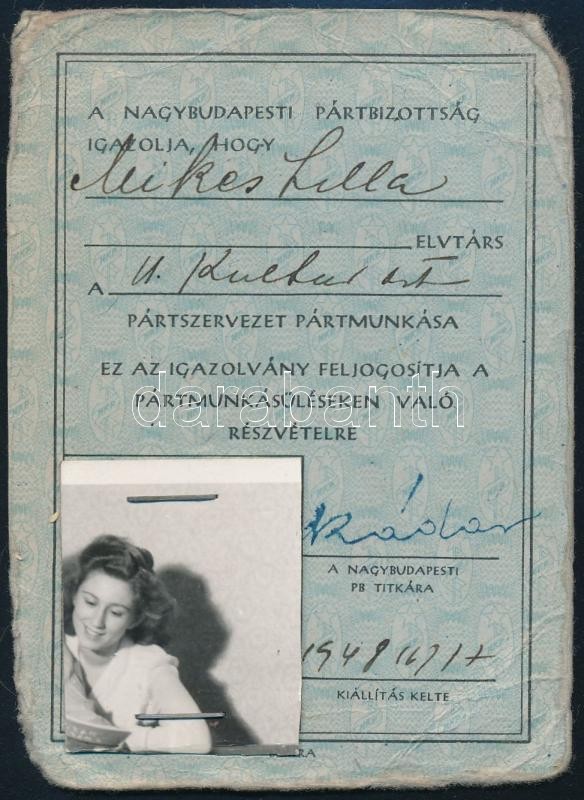 A NAGYBUDAPESTI PÁRTBIZOTTSÁG
IGAZOLJA, HOGY
Mikes Lilla
ELVTÁRS
A II. Kultur oszt
PÁRTSZERVEZET PÁRTMUNKÁSA
EZ AZ IGAZOLVÁNY FELJOGOSÍTJA A
PÁRTMUNKÁSÜLÉSEKEN VALÓ
RÉSZVÉTELRE
darabanth
Kádár
A NAGYBUDAPESTI
PB TITKÁRA
1948
KIÁLLÍTÁS KELTE